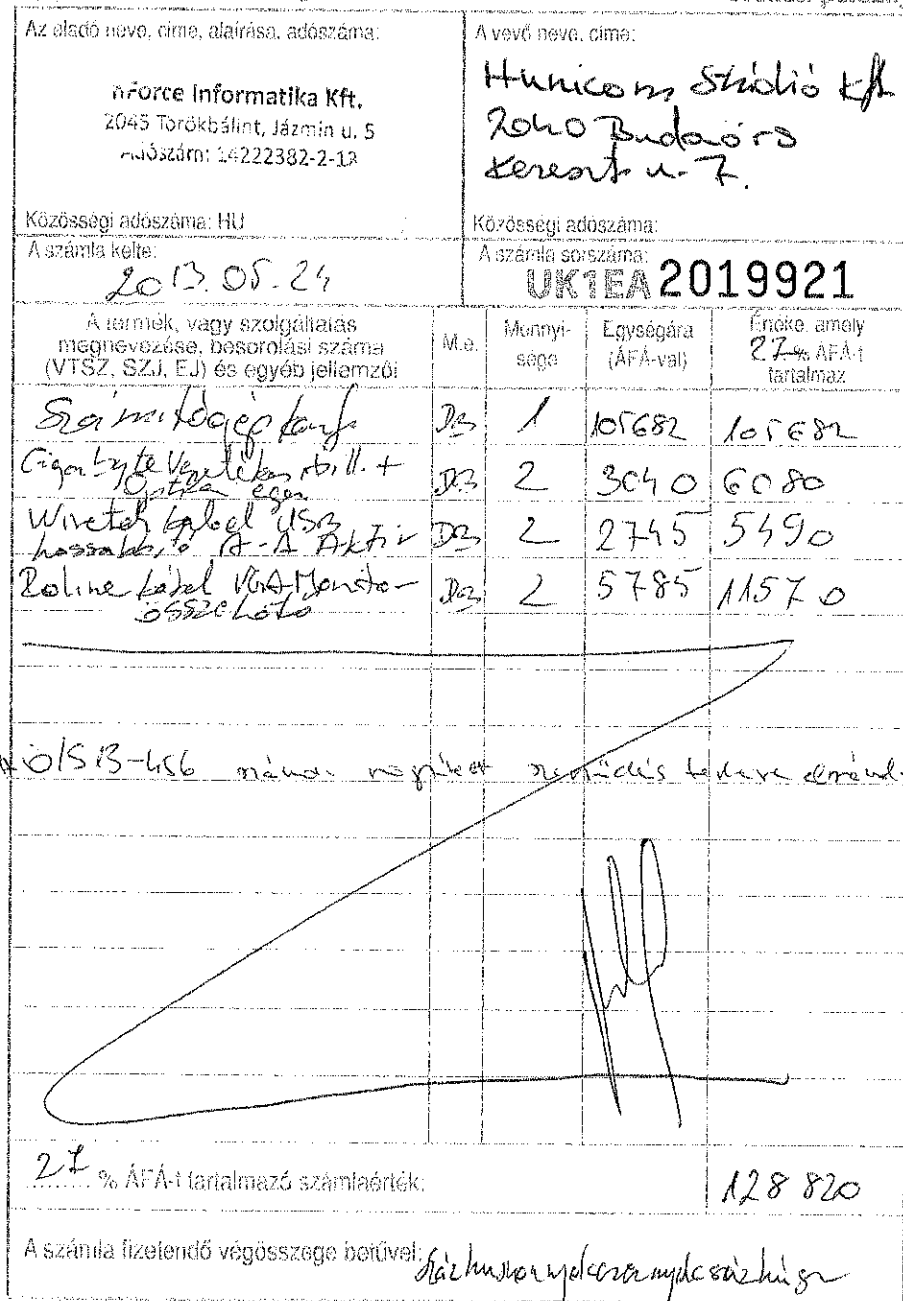 Az eladó neve, címe, aláírása, adószáma:
nForce Informatika Kft.
2045 Törökbálint, Jázmin u. 5
Adószám: 14222382-2-13
Közösségi adószáma: HU
A vevő neve, címe:
Hunicom Stúdió Kft
2040 Budaörs
Kereszt u. 7.
Közösségi adószáma:
A számla kelte:
2013.05.24
A számla sorszáma:
UK1EA 2019921
A termék, vagy szolgáltatás
megnevezése, besorolási száma
(VTSZ, SZJ, EJ) és egyéb jellemzői
M.e.
Mennyi-
sége
Egységára
(ÁFÁ-val)
Értéke, amely
27 % ÁFÁ-t
tartalmaz
Számítógép konf DB 1 105682 105682
Gigabyte vezetékes bill. + DB 2 3040 6080
Optikai egér
Wiretek kábel USB DB 2 2745 5490
hosszabbító A-A Aktív
Roline kábel VGA Monitor DB 2 5785 11570
összekötő
27 % ÁFÁ-t tartalmazó számlaérték: 128 820
A számla fizetendő végösszege betűvel: százhuszonnyolcezernyolcszázhúsz